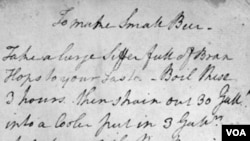 To make Small Beer
Take a large Siffer full of Bran
Hops to your Taste - Boil these
3 hours. then strain out 30 Gall.
into a Cooler put in 3 Gall.
VOA